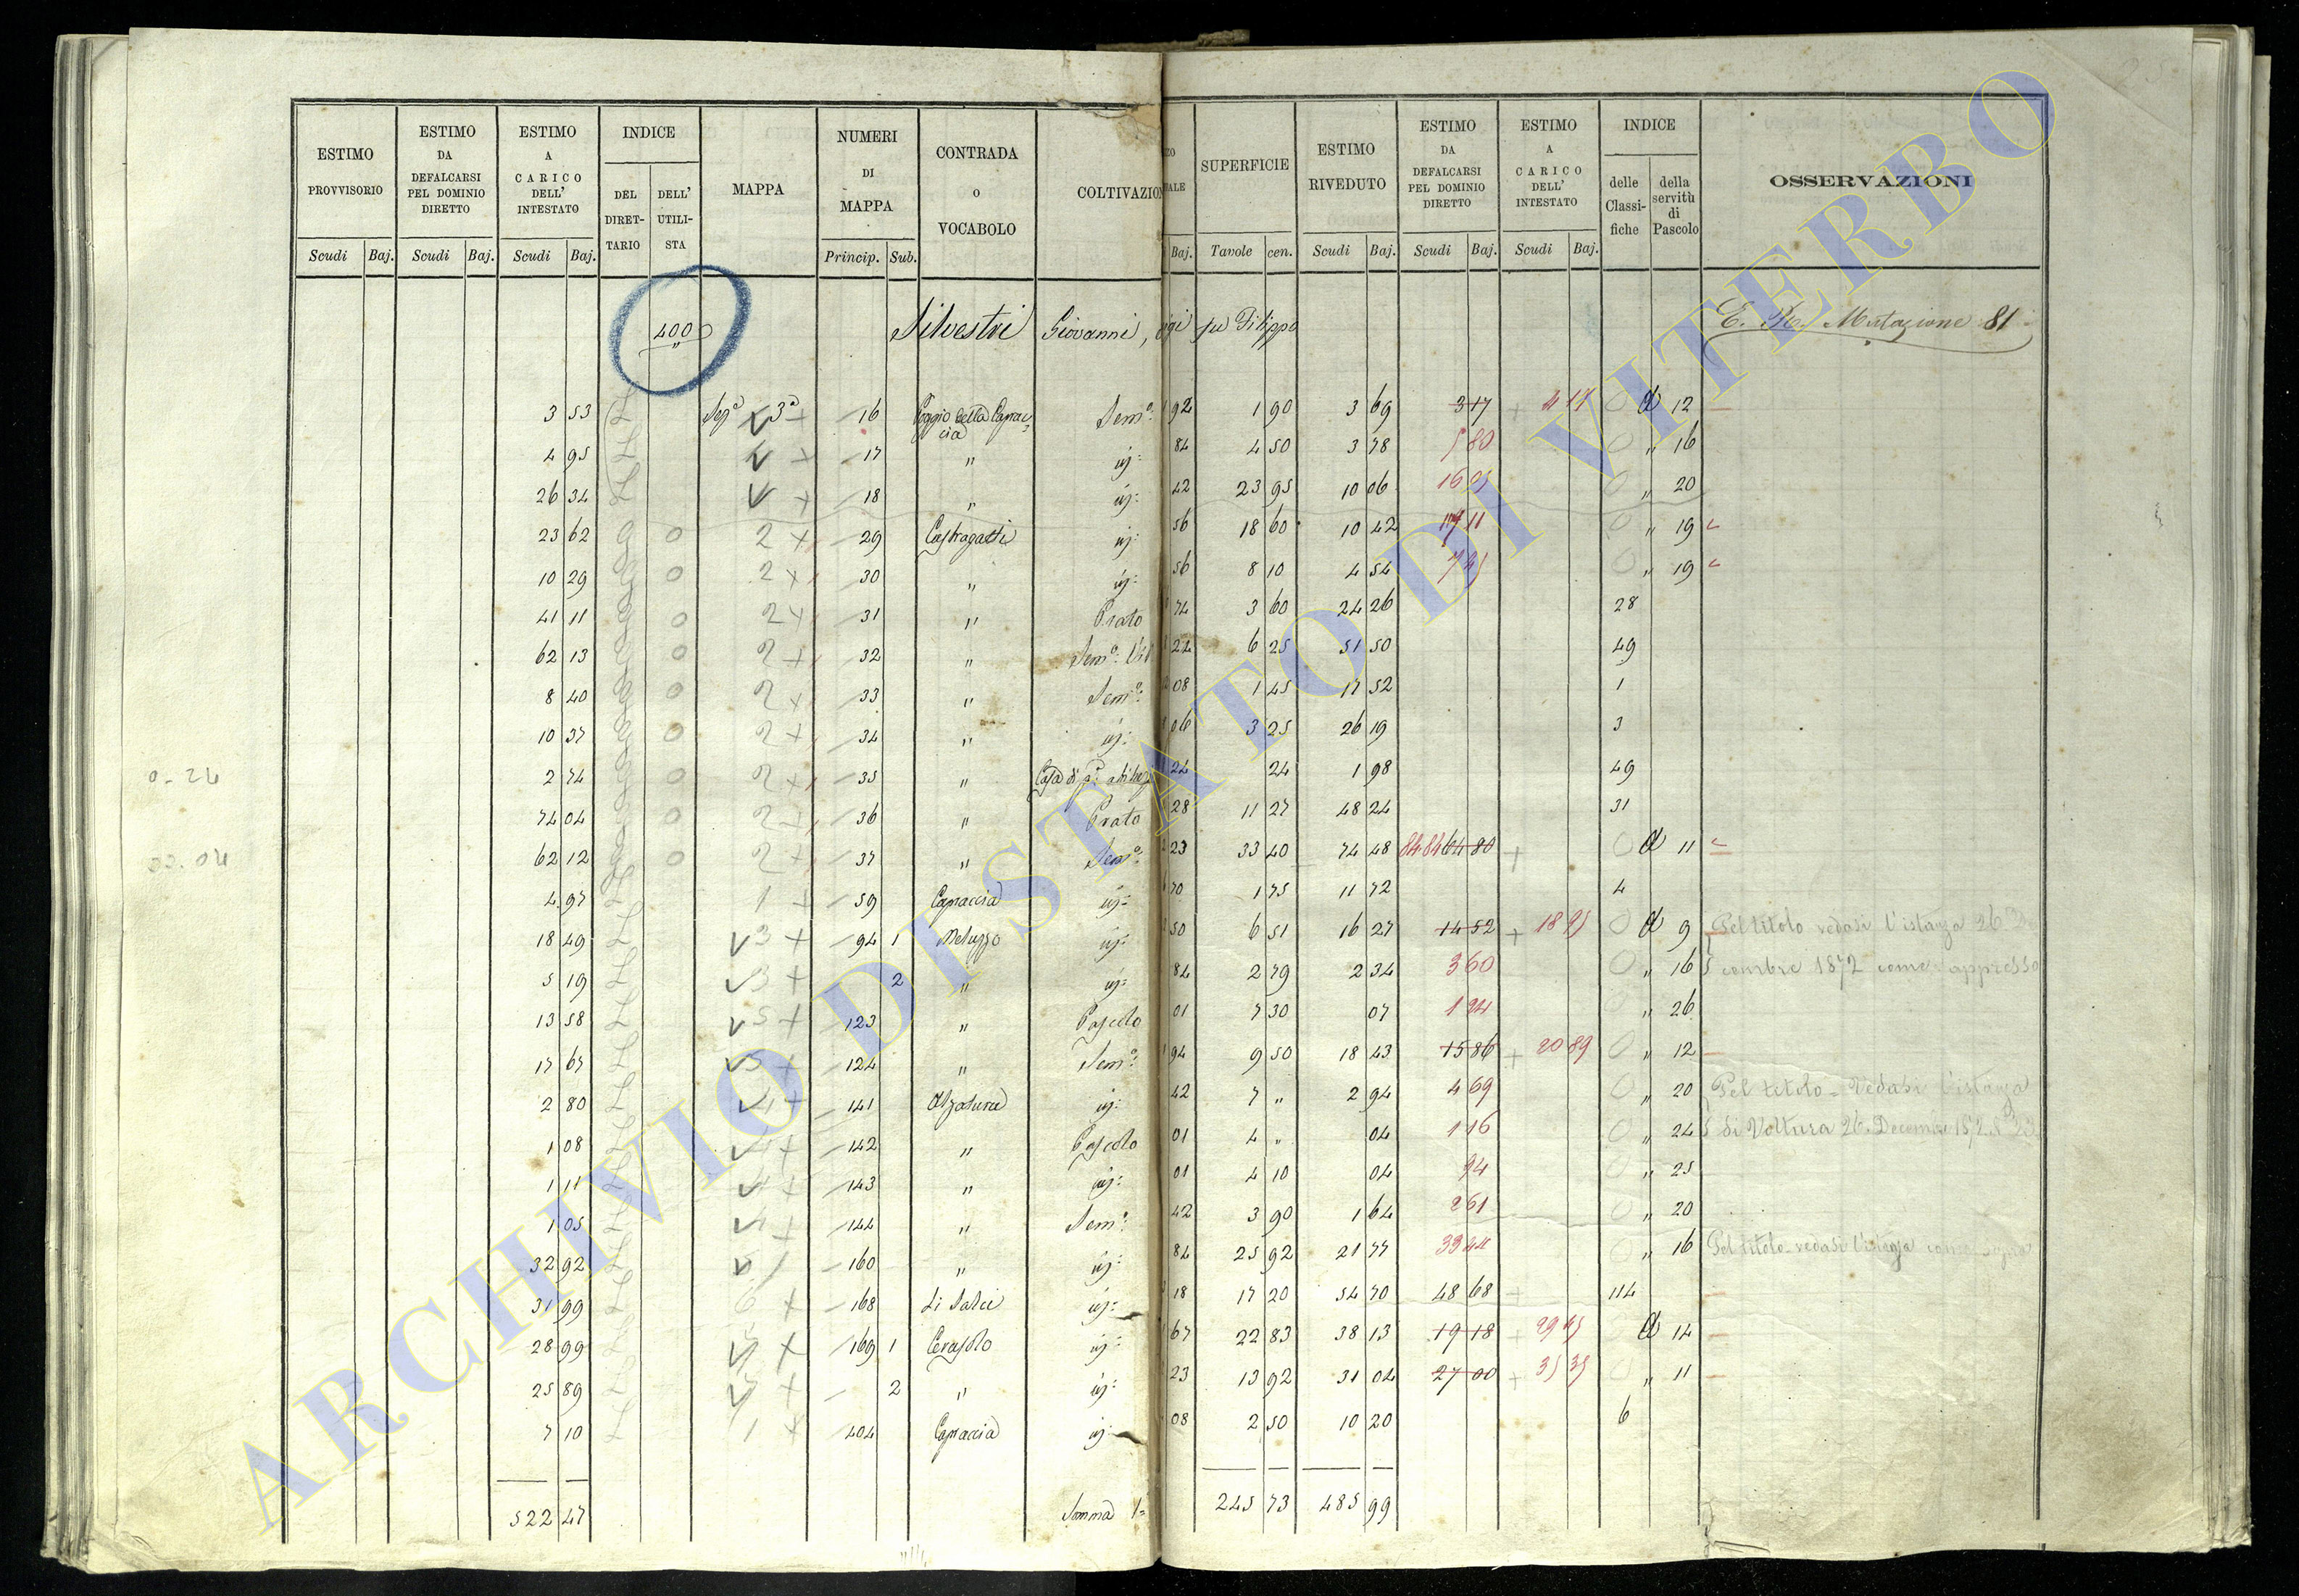 ESTIMO PROVVISORIO Scudi Baj.
ESTIMO DA DEFALCARSI PEL DOMINIO DIRETTO Scudi Baj.
ESTIMO A CARICO DELL' INTESTATO Scudi Baj.
INDICE DEL DIRET- TARIO DELL' UTILI- STA
MAPPA
NUMERI DI MAPPA Princip. Sub.
CONTRADA o VOCABOLO
COLTIVAZION
Baj.
SUPERFICIE Tavole cen.
ESTIMO RIVEDUTO Scudi Baj.
ESTIMO DA DEFALCARSI PEL DOMINIO DIRETTO Scudi Baj.
ESTIMO A CARICO DELL' INTESTATO Scudi Baj.
INDICE delle Classi- fiche della servitù di Pascolo
OSSERVAZIONI
400 Silvestri Giovanni, igi fu Filippo Mutazione 81
3 53 Sez.ª 3ª 16 Poggio della Caprac- cia Sem.º 92 1 90 3 69 3 17 4 17 12
4 95 17 " iỹ: 84 4 50 3 78 5 80 " 16
26 34 18 " iỹ: 42 23 95 10 06 16 05 " 20
23 62 2 29 Castragatti iỹ: 56 18 60 10 42 17 11 " 19
10 29 2 30 " iỹ: 56 8 10 4 54 7 45 " 19
41 11 2 31 " Prato 74 3 60 24 26 28
62 13 2 32 " Sem.º Vit 24 6 25 51 50 49
8 40 2 33 " Sem.º 08 1 45 17 52 1
10 37 2 34 " iỹ: 06 3 25 26 19 3
2 74 2 35 " Casa di 24 24 1 98 49
74 04 2 36 " Prato 28 11 27 48 24 31
62 12 2 37 " Sem.º 23 33 40 74 48 84 84 64 80 11
4 97 1 59 Capraccia iỹ: 70 1 75 11 72 4
18 49 3 94 1 Meluzzo iỹ: 50 6 51 16 27 14 52 18 95 9 Pel titolo vedasi l'istanza 26
5 19 3 2 " iỹ: 84 2 79 2 34 3 60 " 16 cembre 1872 come appresso
13 58 5 123 " Pascolo 01 7 30 07 1 94 " 26
17 67 5 124 " Sem.º 94 9 50 18 43 15 86 20 89 " 12
2 80 141 Alzatura iỹ: 42 7 " 2 94 4 69 " 20 Pel titolo - Vedasi l'istanza
1 08 142 " Pascolo 01 4 " 04 1 16 " 24 di Voltura 26 Decembre 1872
1 11 143 " iỹ: 01 4 10 04 94 " 25
1 05 144 " Sem.º 42 3 90 1 64 2 61 " 20
32 92 160 " iỹ: 84 25 92 21 77 33 44 " 16 Pel titolo - vedasi l'istanza come sopra
31 99 6 168 Li Salci iỹ: 18 17 20 54 70 48 68 114
28 99 169 1 Cerasolo iỹ: 67 22 83 38 13 19 18 29 45 14
25 89 2 " iỹ: 23 13 92 31 04 27 00 35 35 " 11
7 10 1 404 Capraccia iỹ: 08 2 50 10 20 6
522 47 Somma 245 73 485 99
ARCHIVIO DI STATO DI VITERBO